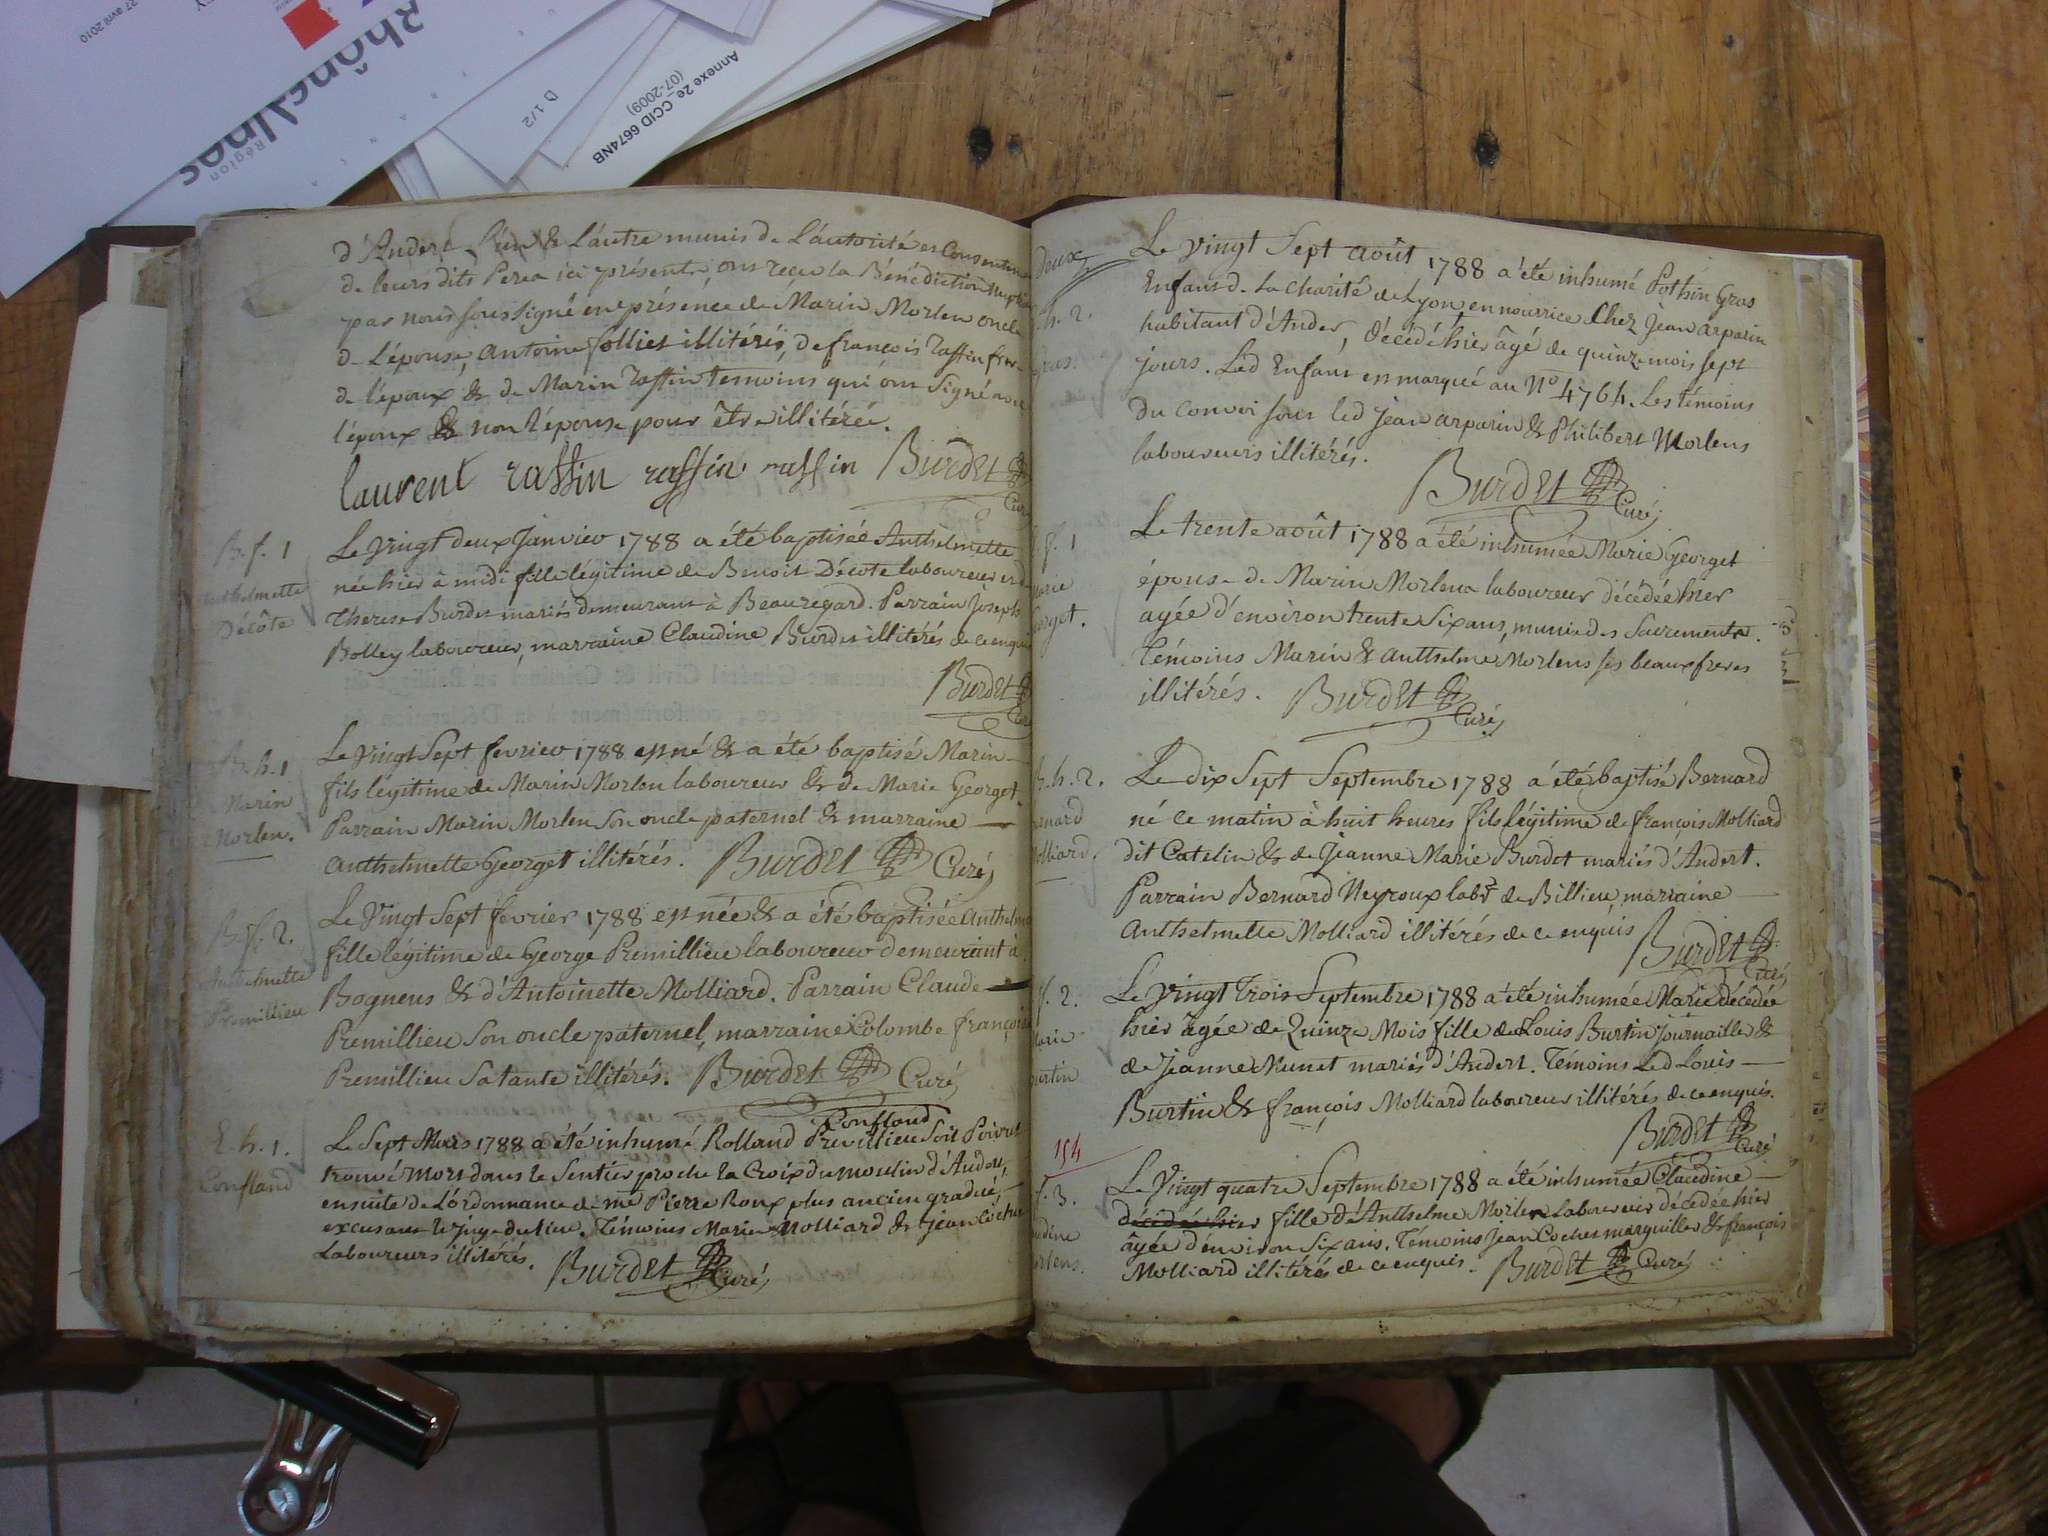 27 avril 2010
Rhône Alpes
Région
D 1/2
Annexe 2e_CCID 6674NB
(07-2009)
d'Andert L'un & L'autre munis de L'autorité et Consentem
de leurs dits Peres ici présents, ont reçu la Bénédiction Nuptia
par nous soussigné en présence de Marin Morlen oncle
de L'épouse, antoine follies illitérés, de françois Raffin frer
de l'époux & de Marin Raffin temoins qui ont Signé avec
l'époux & non l'épouse pour être illitérée.
laurent raffin raffin raffin Burdet
Curé
B. f. 1
Anthelmette
Décôte
Le Vingt deux Janvier 1788 a été baptisée Anthelmette
née hier à midi fille légitime de Benoit Décote laboureur et d
Therese Burdet mariés demeurant à Beauregard. Parrain Joseph
Bolley laboureur, marraine Claudine Burdet illitérés de ce enquis
Burdet
Curé
B. h. 1
Marin
Morlen.
Le Vingt Sept fevrier 1788 est né & a été baptisé Marin
fils légitime de Marin Morlen laboureur & de Marie Georget.
Parrain Marin Morlen son oncle paternel & marraine
Anthelmette Georget illitérés. Burdet Curé
B. f. 2.
Anthelmette
Premillieu
Le Vingt Sept fevrier 1788 est née & a été baptisée Anthelm
fille légitime de George Premillieu laboureur demeurant à
Bognens & d'Antoinette Molliard. Parrain Claude
Premillieu Son oncle paternel, marraine Colombe françoise
Premillieu Sa tante illitérés. Burdet Curé
E. h. 1.
Confland
Confland
Le Sept Mars 1788 a été inhumé Rolland Previllieu Soit Poivret
trouvé mort dans le Sentier proche la Croix du moulin d'Andert,
ensuite de L'ordonnance de me Pierre Roux plus ancien gradué
excusant le juge du lieu. Témoins Marin Molliard & Jean Cochet
Laboureurs illitérés.
Burdet Curé
deux
. h. 2.
Gros.
Le Vingt Sept août 1788 a été inhumé Pothin Gros
Enfant de La Charité de Lyon, en nourrice Chez Jean arparin
habitant d'Ander, décédé hier âgé de quinze mois sept
jours. Led Enfant est marqué au No 4764. Les témoins
du convoi sont led Jean arparin & Philibert Morlens
laboureurs illitérés.
Burdet
Curé
. f. 1
Marie
Georget.
Le trente août 1788 a été inhumée Marie Georget
épouse de Marin Morlens laboureur décédée hier
agée d'environ trente Six ans, munie des Sacrements.
Témoins Marin & Anthelme Morlens ses beaux freres
illitérés. Burdet
Curé
B. h. 2.
Bernard
Molliard.
Le dix Sept Septembre 1788 a été baptisé Bernard
né ce matin à huit heures fils légitime de françois Molliard
dit Catelin & de Jeanne Marie Burdet mariés d'Andert.
Parrain Bernard Neyroux labr de Billieu, marraine
Anthelmette Molliard illitérés de ce enquis
Burdet
Curé
f. 2.
Marie
Burtin
Le Vingt Trois Septembre 1788 a été inhumée Marie décédée
hier agée de Quinze Mois fille de Louis Burtin journaille &
de Jeanne Munet mariés d'Andert. Témoins Led Louis
Burtin & françois Molliard laboureur illitérés de ce enquis.
Burdet
Curé
154
f. 3.
Claudine
Morlens.
Le Vingt quatre Septembre 1788 a été inhumée Claudine
décédée hier fille d'Anthelme Morlens Laboureur décédée hier
âgée d'environ Six ans. Témoins Jean Cochet marguiller & françois
Molliard illitérés de ce enquis. Burdet Curé